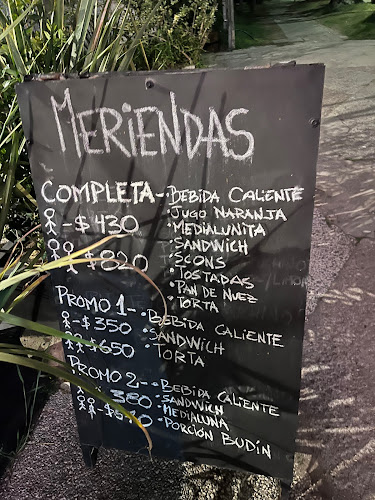 MERIENDAS
COMPLETA-• BEBIDA CALIENTE
• JUGO NARANJA
-$430 • MEDIALUNITA
• SANDWICH
$820 • SCONS
• TOSTADAS
• PAN DE NUEZ
• TORTA
PROMO 1--• BEBIDA CALIENTE
-$350 • SANDWICH
$650 • TORTA
PROMO 2--• BEBIDA CALIENTE
380 • SANDWICH
• MEDIALUNA
• PORCIÓN BUDÍN